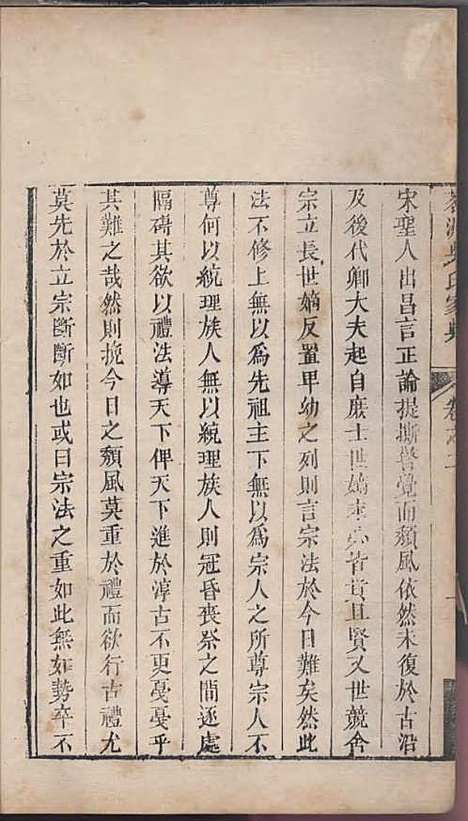 茗洲吳氏家典 卷之二
宋聖人出昌言正論提撕警覺而頹風依然未復於古沿
及後代卿大夫起自庶士世嫡未必皆貴且賢又世競舍
宗立長世嫡反置卑幼之列則言宗法於今日難矣然此
法不修上無以為先祖主下無以為宗人之所尊宗人不
尊何以統理族人無以統理族人則冠昏喪祭之間逐處
隔碍其欲以禮法導天下俾天下進於淳古不更戞戞乎
其難之哉然則挽今日之頹風莫重於禮而欲行古禮尤
莫先於立宗斷斷如也或曰宗法之重如此無如勢卒不